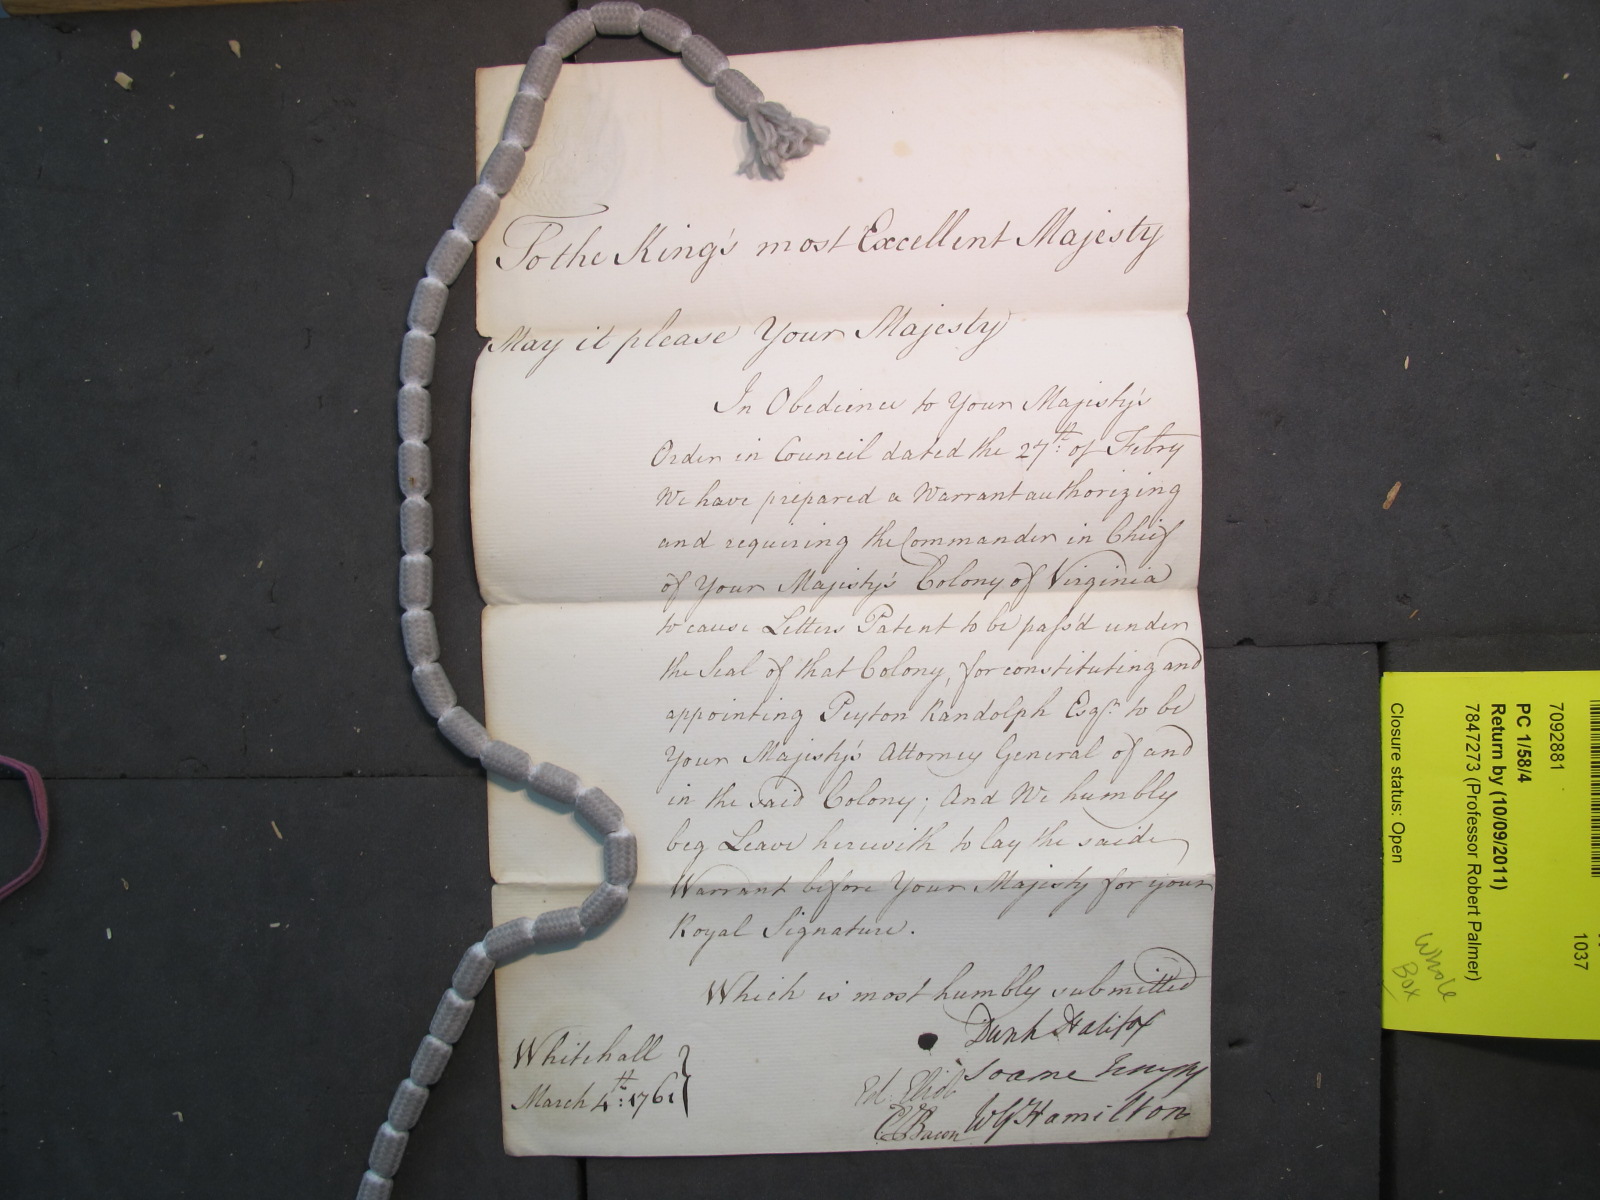 To the King's most Excellent Majesty
May it please Your Majesty
In Obedience to Your Majesty's
Order in Council dated the 27th: of Febry
We have prepared a Warrant authorizing
and requiring the Commander in Chief
of Your Majesty's Colony of Virginia
to cause Letters Patent to be pass'd under
the Seal of that Colony, for constituting and
appointing Peyton Randolph Esqr. to be
Your Majesty's Attorney General of and
in the said Colony; And We humbly
beg Leave herewith to lay the said
Warrant before Your Majesty for your
Royal Signature.
Which is most humbly submitted
Dunk Halifax
Soame Jenyns
Ed. Eliot
E Bacon
WG Hamilton
Whitehall
March 4th: 1761
7092881
PC 1/58/4
Return by (10/09/2011)
7847273 (Professor Robert Palmer)
Closure status: Open
1037
Whole
Box